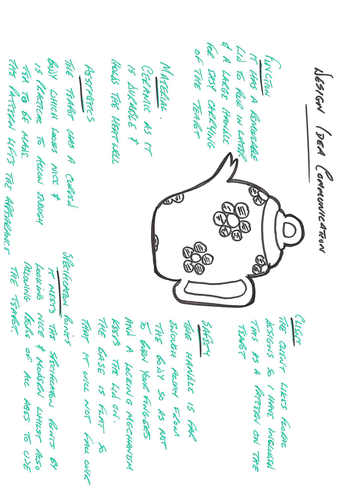 DESIGN IDEA COMMUNICATION
FUNCTION
IT HAS A REMOVABLE
LID TO POUR IN WATER
& A LARGE HANDLE
FOR EASY CARRYING
OF THE TEAPOT
MATERIAL.
CERAMIC AS IT
IS DURABLE &
HOLDS THE HEAT WELL
AESTHETICS
THE TEAPOT HAS A CURVED
BODY WHICH LOOKS NICE &
IS PRACTICAL TO ALLOW ENOUGH
TEA TO BE MADE.
THE PATTERN LIFTS THE APPEARANCE
CLIENT
MY CLIENT LIKES FLORAL
DESIGNS SO I HAVE INCLUDED
THIS AS A PATTERN ON THE
TEAPOT
SAFETY
THE HANDLE IS FAR
ENOUGH AWAY FROM
THE BODY SO AS NOT
TO BURN YOUR FINGERS
AND A LOCKING MECHANISM
KEEPS THE LID ON.
THE BASE IS FLAT SO
THAT IT WILL NOT FALL OVER
SPECIFICATION POINTS
IT MEETS THE SPECIFICATION POINTS BY
LOOKING NICE & MODERN WHILST ALSO
ALLOWING PEOPLE OF ALL AGES TO USE
THE TEAPOT.